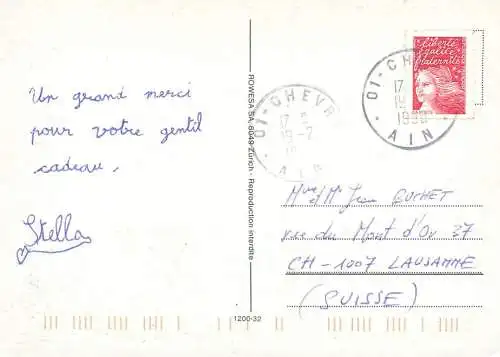 Un grand merci
pour votre gentil
cadeau.
Stella
ROWESA SA, 8049 Zürich - Reproduction interdite
1200-32
liberté
égalité
fraternité
01-CHEVR
17
19-2
AIN
01-CHE
17
19
1998
AIN
Mme et Mr Jean
rue du Mont d'Or 37
CH-1007 LAUSANNE
(SUISSE)